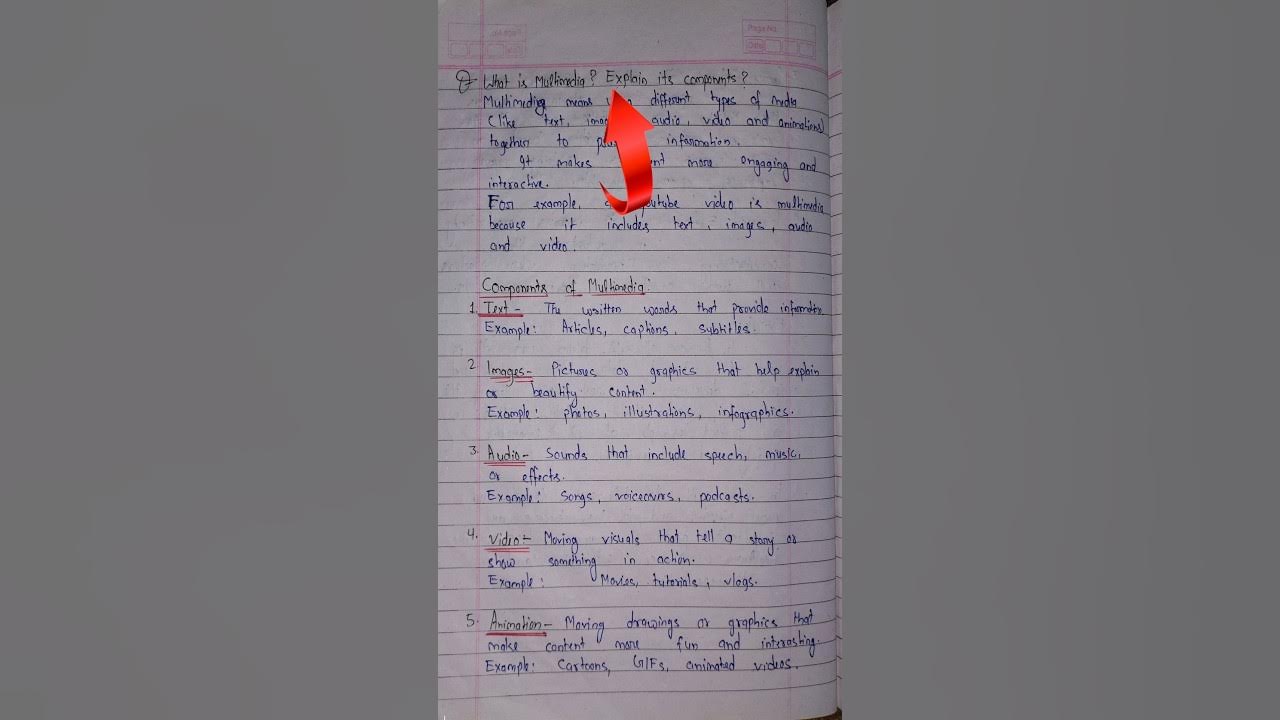 Page No.
Date
Q What is Multimedia? Explain its components?
Multimediag means different types of media
(like text, audio, video and animations)
together to information.
It makes more engaging and
interactive.
For example, video is multimedia
because it includes text, images, audio
and video.
Components of Multimedia:
1. Text - The written words that provide information.
Example: Articles, captions, subtitles.
2 Images- Pictures or graphics that help explain
or beautify content.
Example: photos, illustrations, infographics.
3. Audio- Sounds that include speech, music,
or effects.
Example: Songs, voiceovers, podcasts.
4. Video:- Moving visuals that tell a story or
show something in action.
Example: Movies, tutorials, vlogs.
5. Animation- Moving drawings or graphics that
make content more fun and interasting.
Example: Cartoons, GIFs, animated videos.